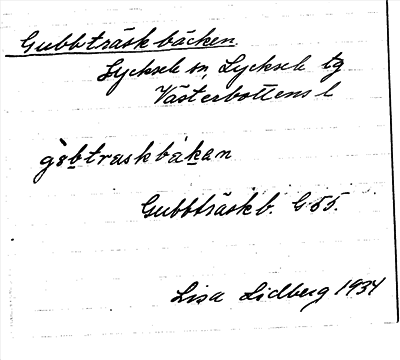 Gubbträskbäcken
Lycksele sn, Lycksele tg
Västerbottens l
gòbtraskbakan
Gubbträskb. G 55.
Lisa Lidberg 1934